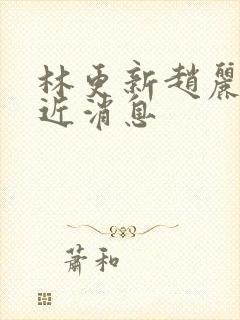 林更新趙麗
近消息
蕭和